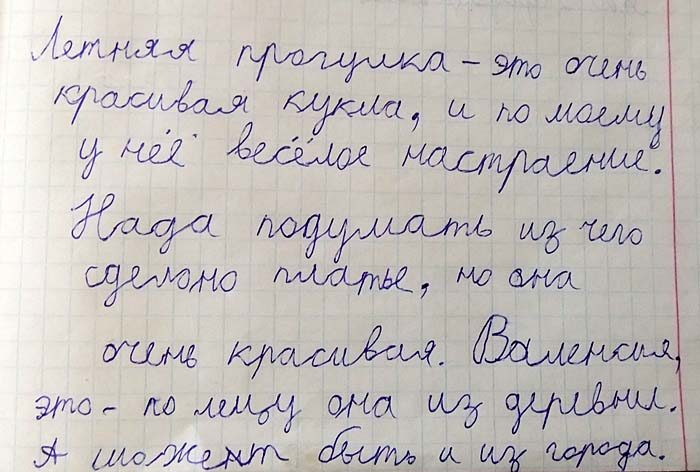 Летняя прогулка – это очень
красивая кукла, и по моему
у неё весёлое настраение.
Нада подумать из чего
сделоно платье, но она
очень красивая. Валенкия,
это – по лецу она из деревни.
А может быть и из города.